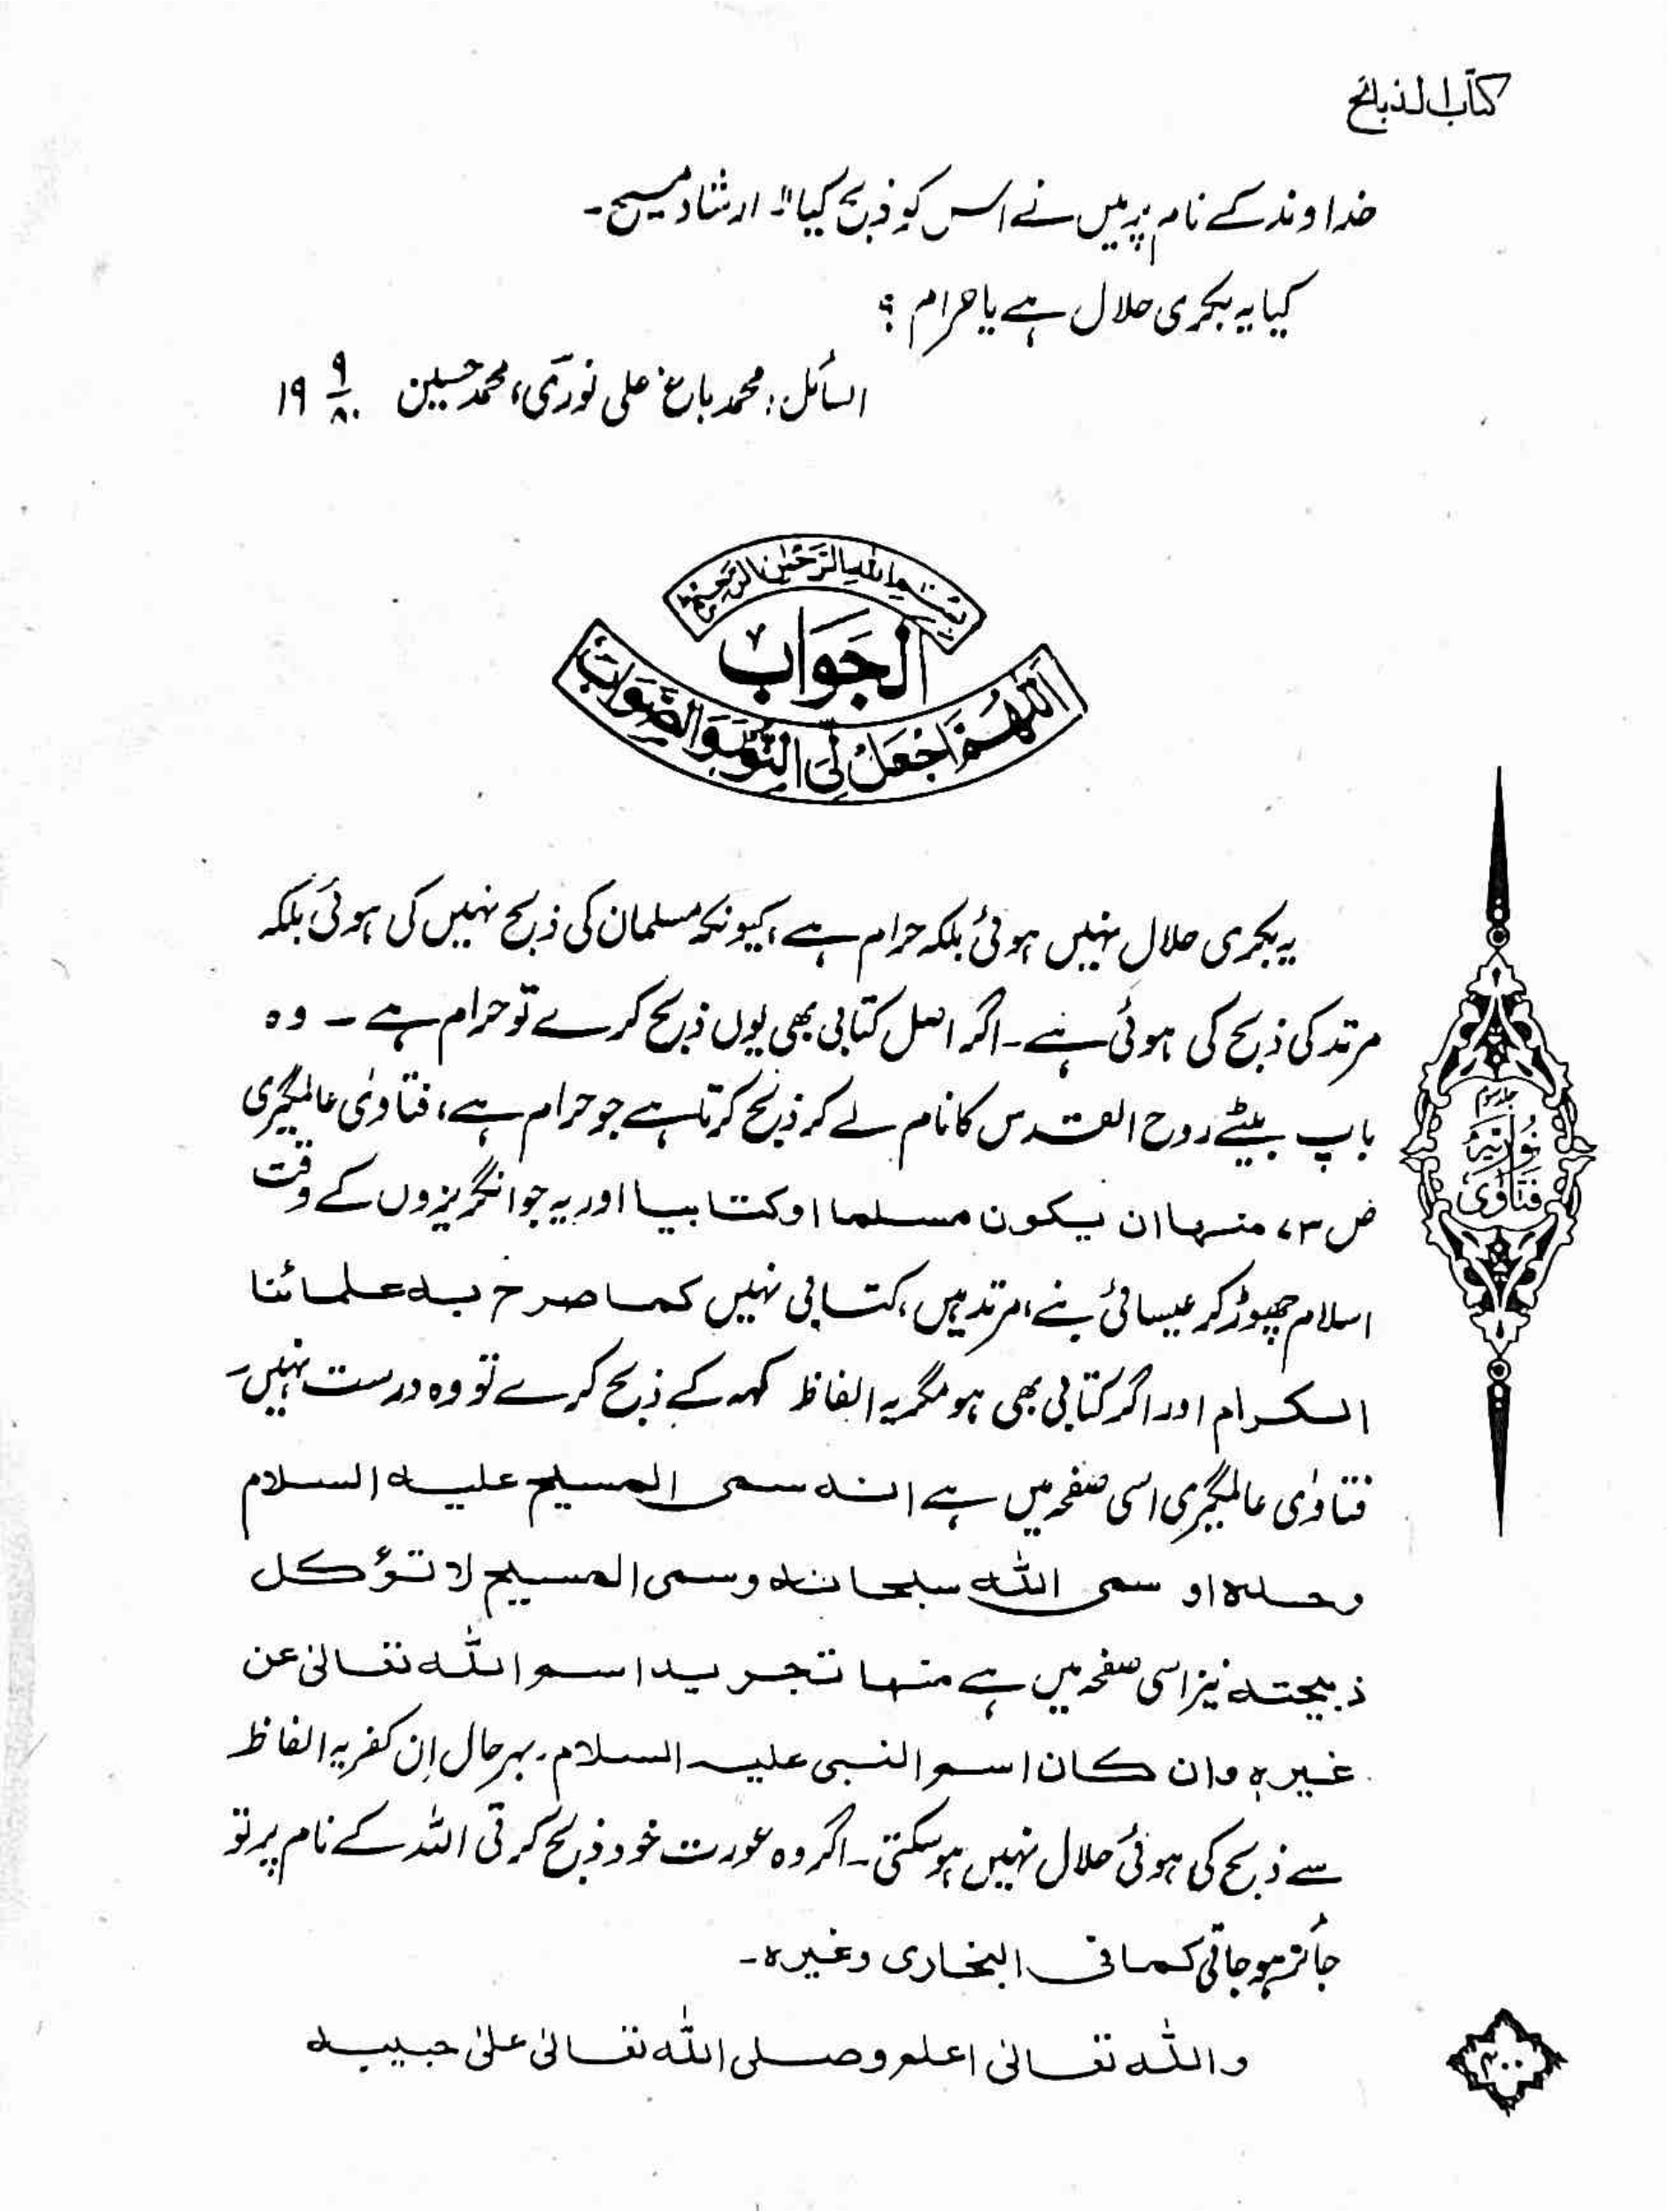 کتاب الذبائح
خداوند کے نام پر میں نے اس کو ذبح کیا"۔ ارشاد مسیح۔
کیا یہ بکری حلال ہے یا حرام ؟
السائل: محمد باغ علی نوری، محمد حسین ۹/۸۰ ۱۹
بسم الله الرحمن الرحيم
الجواب
اللهم اجعل لي النور والصواب
یہ بکری حلال نہیں ہوئی بلکہ حرام ہے، کیونکہ مسلمان کی ذبح نہیں کی ہوئی بلکہ
مرتد کی ذبح کی ہوئی ہے۔ اگر اصل کتابی بھی یوں ذبح کرے تو حرام ہے ۔ وہ
باپ بیٹے روح القدس کا نام لے کر ذبح کرتا ہے جو حرام ہے، فتاویٰ عالمگیری
ص ۷۳ منها ان يكون مسلما او كتابيا اور یہ جو انگریزوں کے وقت
اسلام چھوڑ کر عیسائی بنے، مرتد ہیں، کتابی نہیں كما صرح به علمائنا
الكرام اور اگر کتابی بھی ہو مگر یہ الفاظ کہہ کے ذبح کرے تو وہ درست نہیں۔
فتاوٰی عالمگیری اسی صفحہ میں ہے انه سمى المسيح عليه السلام
وحده او سمى الله سبحانه وسمى المسيح لا تؤكل
ذبيحته نیز اسی صفحہ میں ہے منها تجريد اسم الله تعالىٰ عن
غيره وان كان اسم النبي عليه السلام۔ بہرحال اِن کفریہ الفاظ
سے ذبح کی ہوئی حلال نہیں ہوسکتی۔ اگر وہ عورت خود ذبح کرتی اللہ کے نام پر تو
جائز ہو جاتی كما فى البخارى وغيره۔
والله تعالىٰ اعلم وصلى الله تعالىٰ علىٰ حبيبه
جلد سوم
فتاویٰ نوریہ
۴۰۰